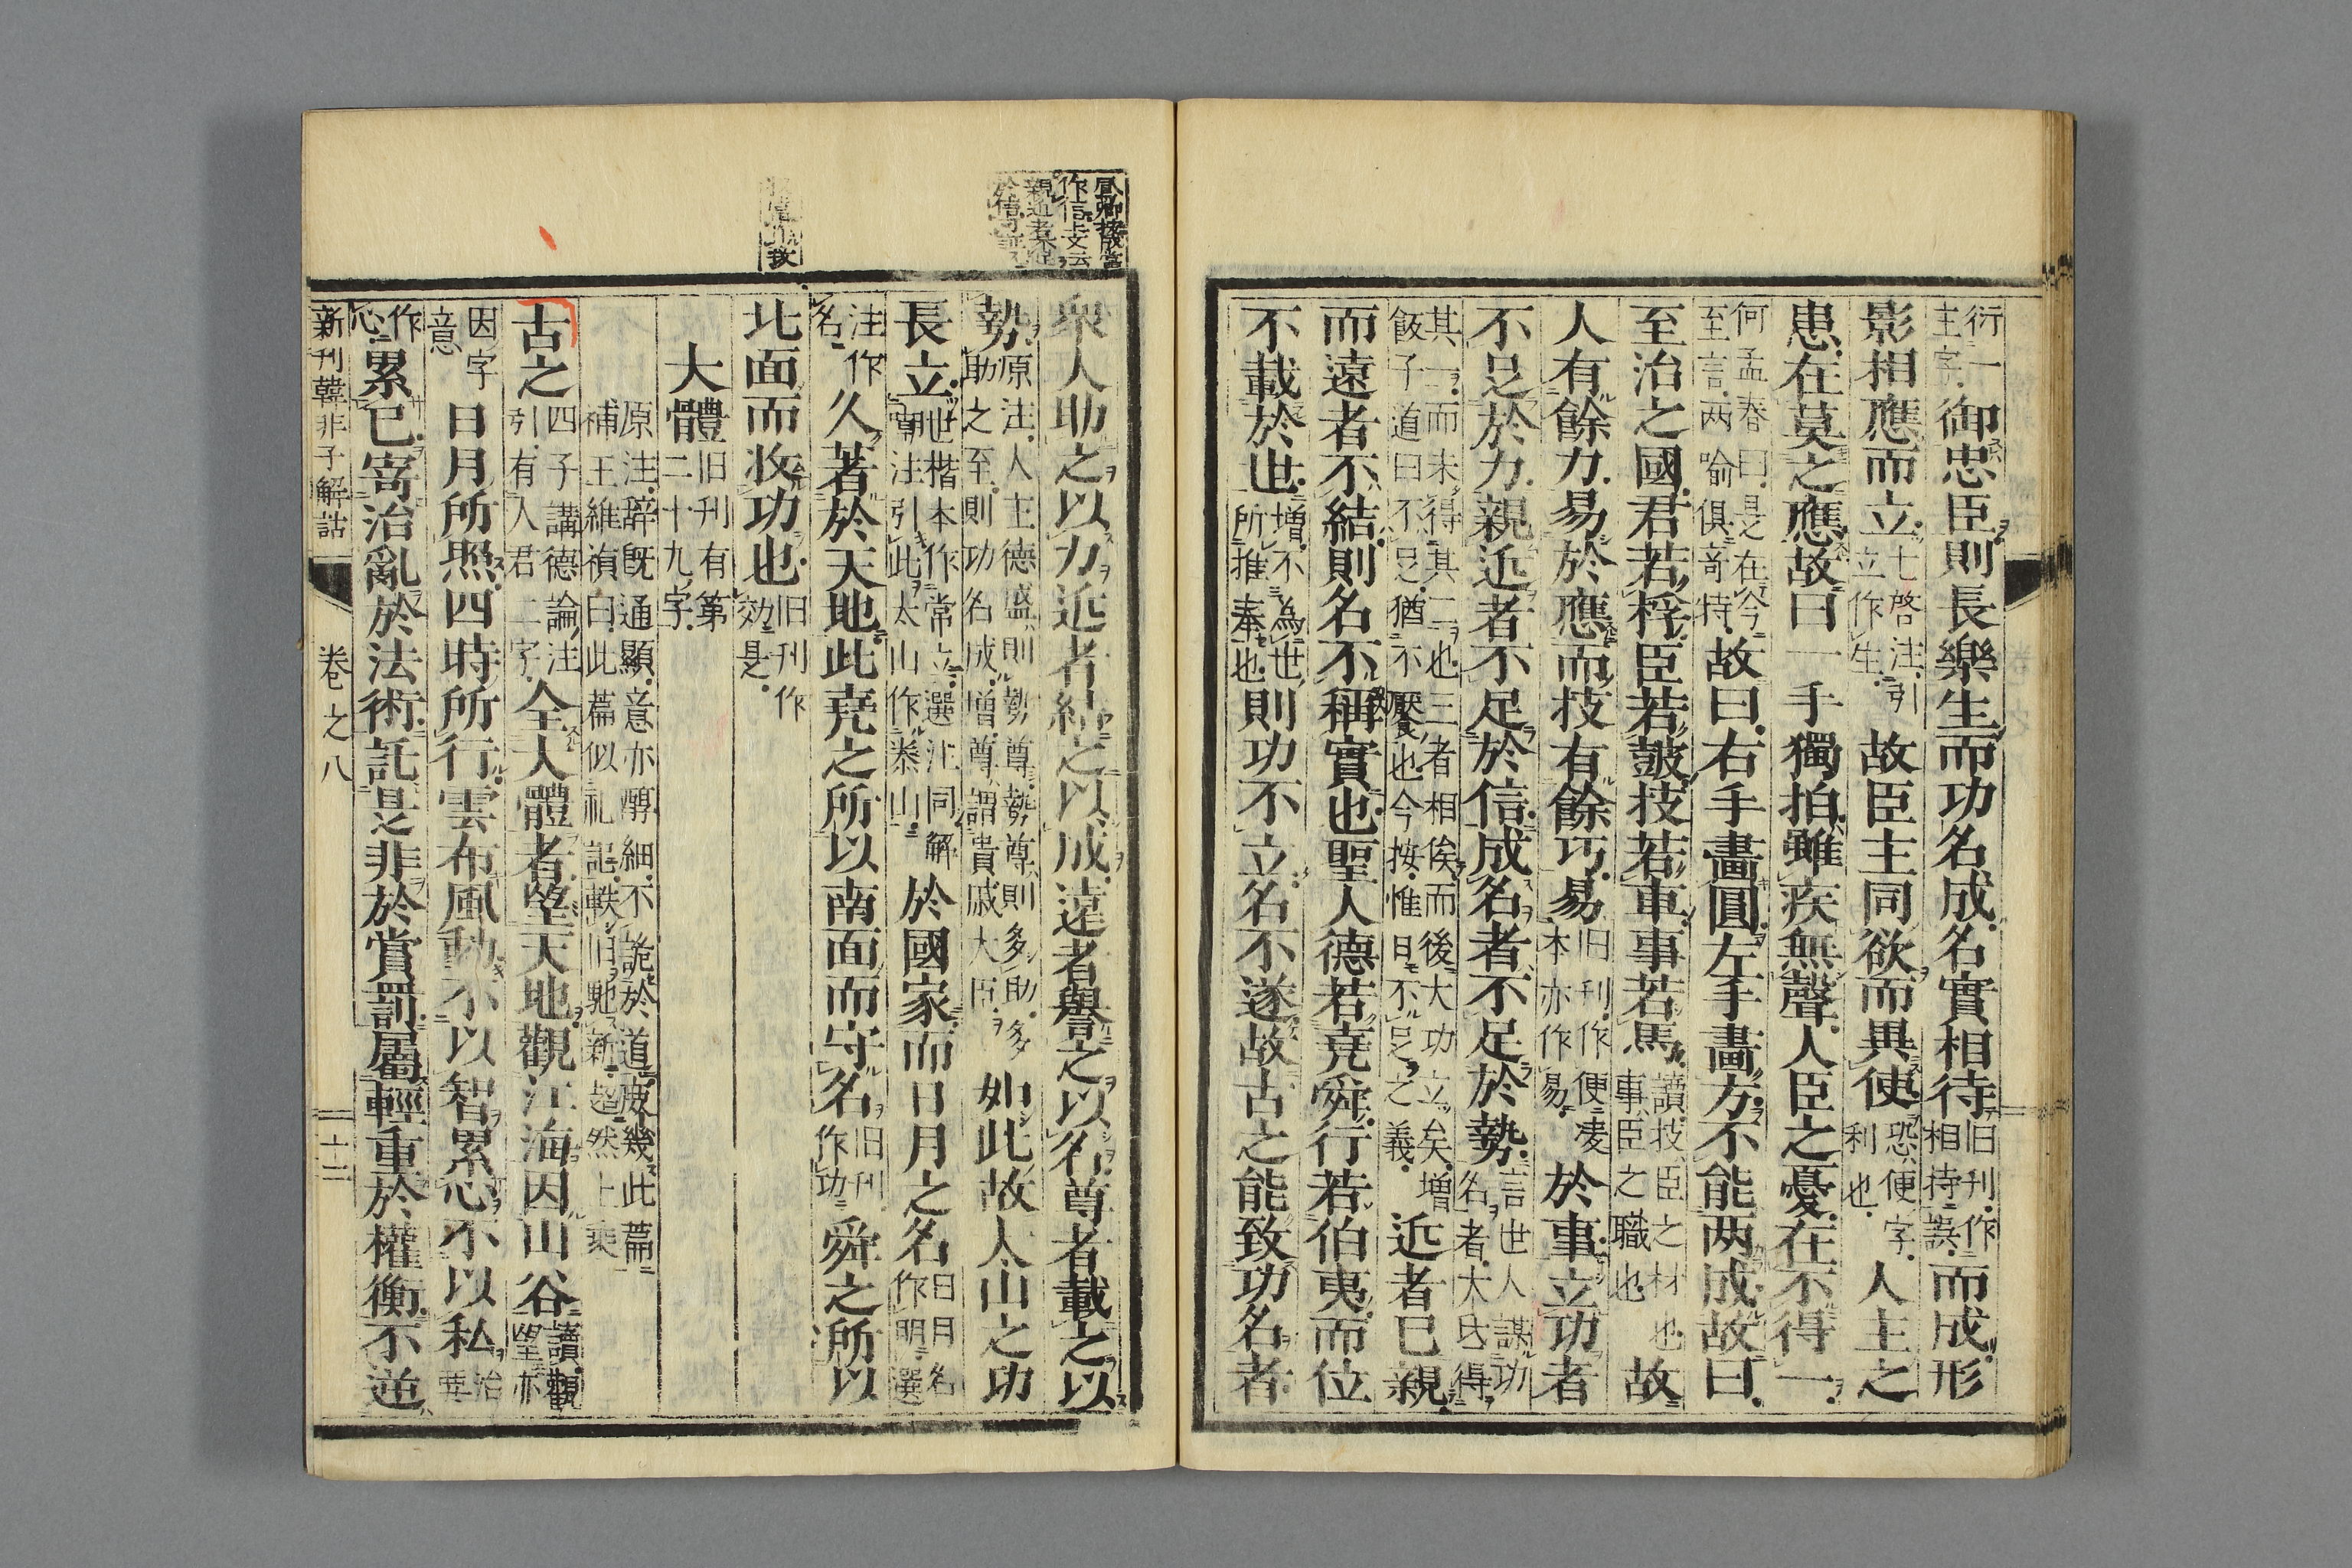 衍一主字御忠臣則長樂生而功名成名實相待旧刊作相持誤而成形
影相應而立七啓注引立作生故臣主同欲而異使恐便字利也人主之
患在莫之應故曰一手獨拍雖疾無聲人臣之憂在不得一
何孟春曰是在今至言两喻俱竒特故曰右手畫圓左手畫方不能两成故曰
至治之國君若桴臣若鼓技若車事若馬讀技臣之材也事臣之職也故
人有餘力易於應而技有餘巧易旧刊作便凌本亦作易於事立功者
不足於力親近者不足於信成名者不足於勢言世人謀功名者大氐得
其一而未得其二也三者相俟而後大功立矣増飯子道曰不足猶不饜也今按惟日不足之義近者已親
而遠者不結則名不稱實也聖人德若堯舜行若伯夷而位
不載於世増不為世所推奉也則功不立名不遂故古之能致功名者
衆人助之以力近者結之以成遠者譽之以名尊者載之以
勢原注人主德盛則勢尊勢尊則多助多助之至則功名成増尊謂貴戚大臣如此故太山之功
長立世楷本作常立選注同解嘲注引此太山作泰山於國家而日月之名日月名作明選
注作名久著於天地此堯之所以南面而守名旧刊作功舜之所以
北面而效功也旧刊作効是
大體旧刊有第二十九字
原注辞既通顯意亦醇細不詭於道庻幾此篇補王維禎曰此篇似礼記軼旧馳新超然上乘
古之四子講德論注引有人君二字全大體者望天地觀江海因山谷讀觀望亦
因字意日月所照四時所行雲布風動不以智累心不以私治要
作心累已寄治亂於法術託是非於賞罰屬輕重於權衡不逆
新刊韓非子解詁
卷之八
十二